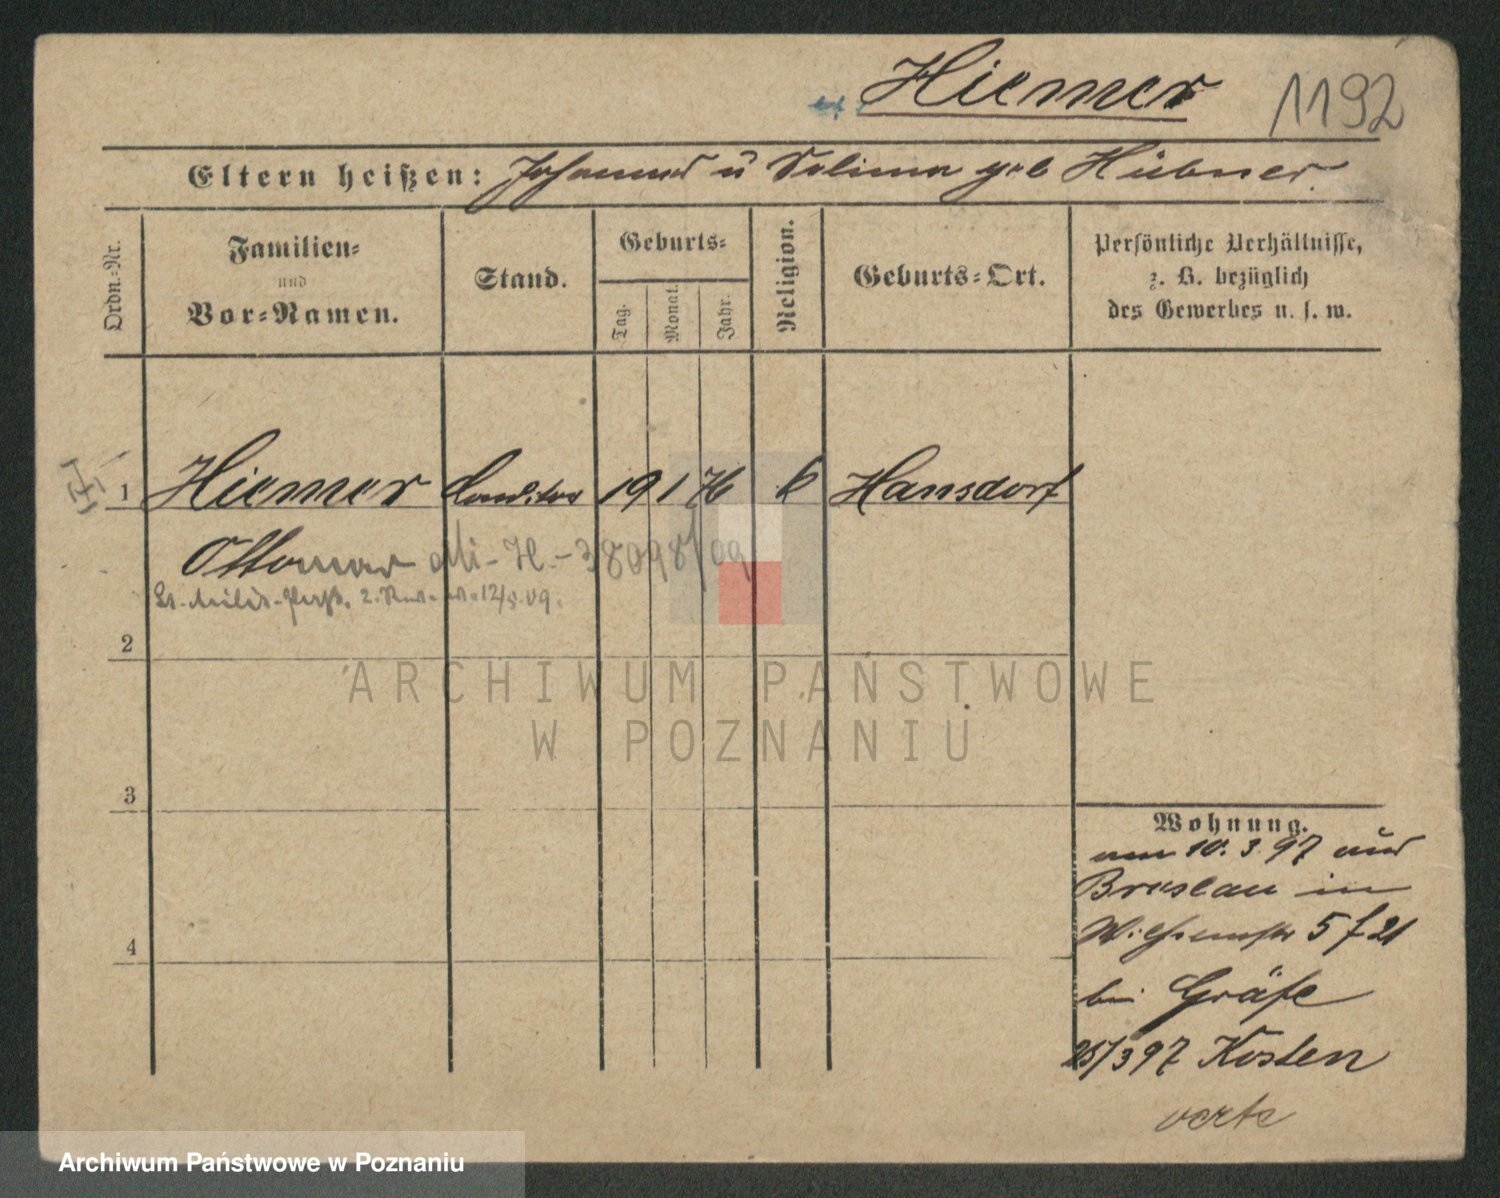 Hiemer 1192
Eltern heißen: Johannes u Selima geb Hübner.
Ordn.-Nr.
Familien-
und
Vor-Namen.
Stand.
Geburts-
Tag.
Monat.
Jahr.
Religion.
Geburts-Ort.
Persönliche Verhältnisse,
z. B. bezüglich
des Gewerbes u. s. w.
1 Hiemer Conditor 19 1 76 k Hansdorf
Ottomar - H. - 38098/09
12/5.09.
2
3
4
Wohnung.
am 10. 3. 97 aus
Breslau in
Wilhelmstr 5 f 21
bei Gräfe
25/3 97 Kosten
verte
ARCHIWUM PAŃSTWOWE
W POZNANIU
Archiwum Państwowe w Poznaniu